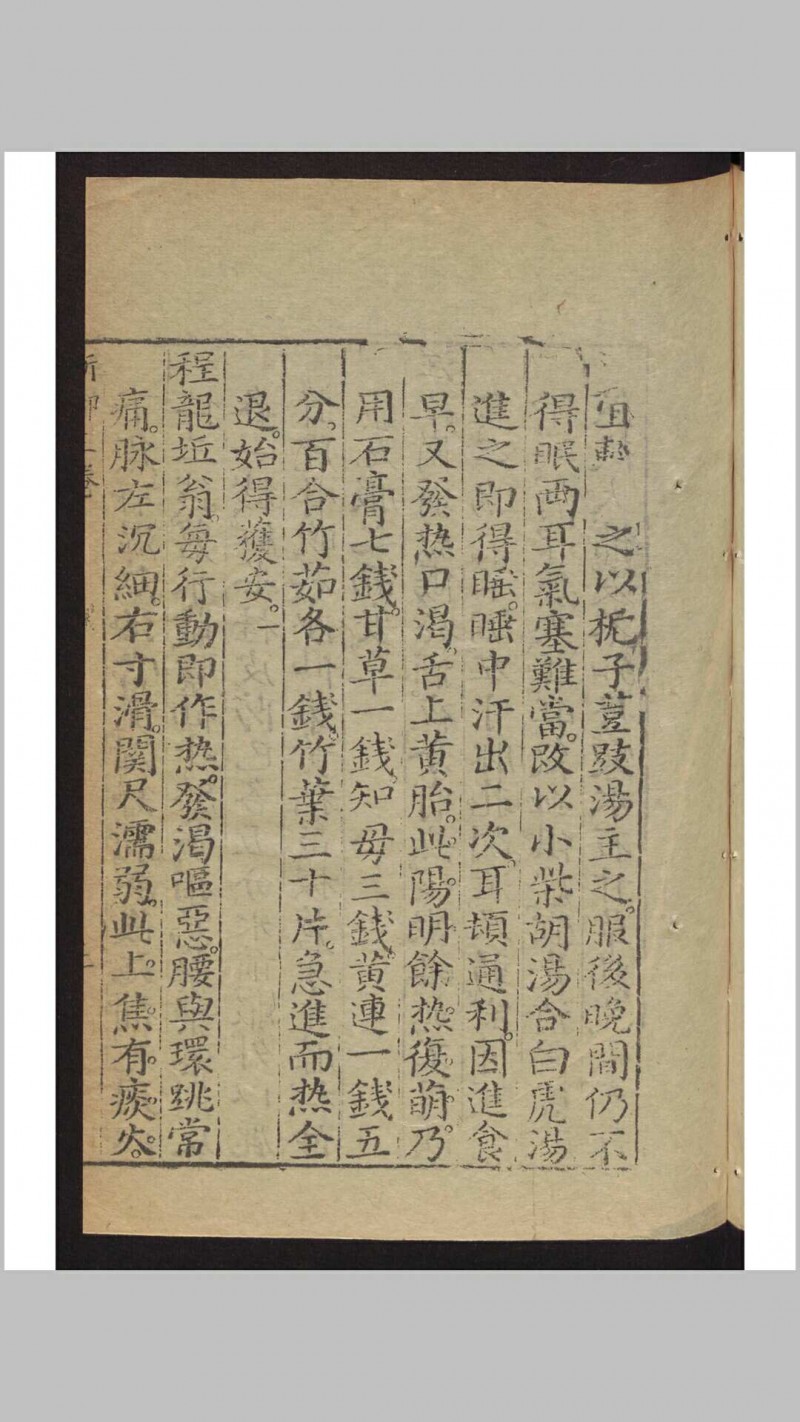 宜 之以梔子荳豉湯主之服後晚間仍不
得眠两耳氣塞難當改以小柴胡湯合白虎湯
進之即得睡。睡中汗出二次。耳頓通利。因進食
早。又發热口渴。舌上黄胎。此陽明餘热復萌。乃
用石膏七錢。甘草一錢。知母三錢。黄連一錢五
分。百合竹茹各一錢。竹葉三十片。急進而热全
退。始得獲安。一
程龍坵翁。每行動即作热。發渴嘔惡。腰與環跳常
痛。脉左沉細。右寸滑。関尺濡弱。此上焦有痰火。